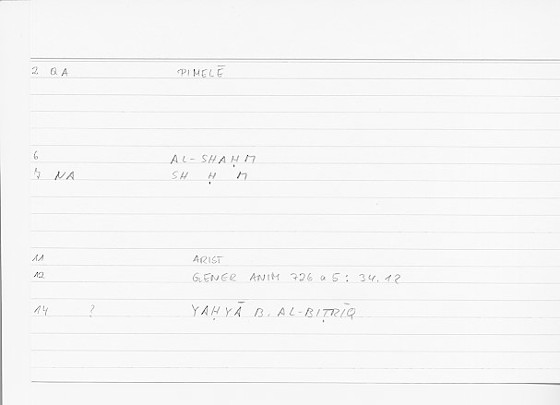 2 QA PIMELĒ
6 AL-SHAḤM
7 NA SH Ḥ M
11 ARIST
12 GENER ANIM 726 a 5 : 34.12
14 ? YAḤYĀ B. AL-BIṬRĪQ